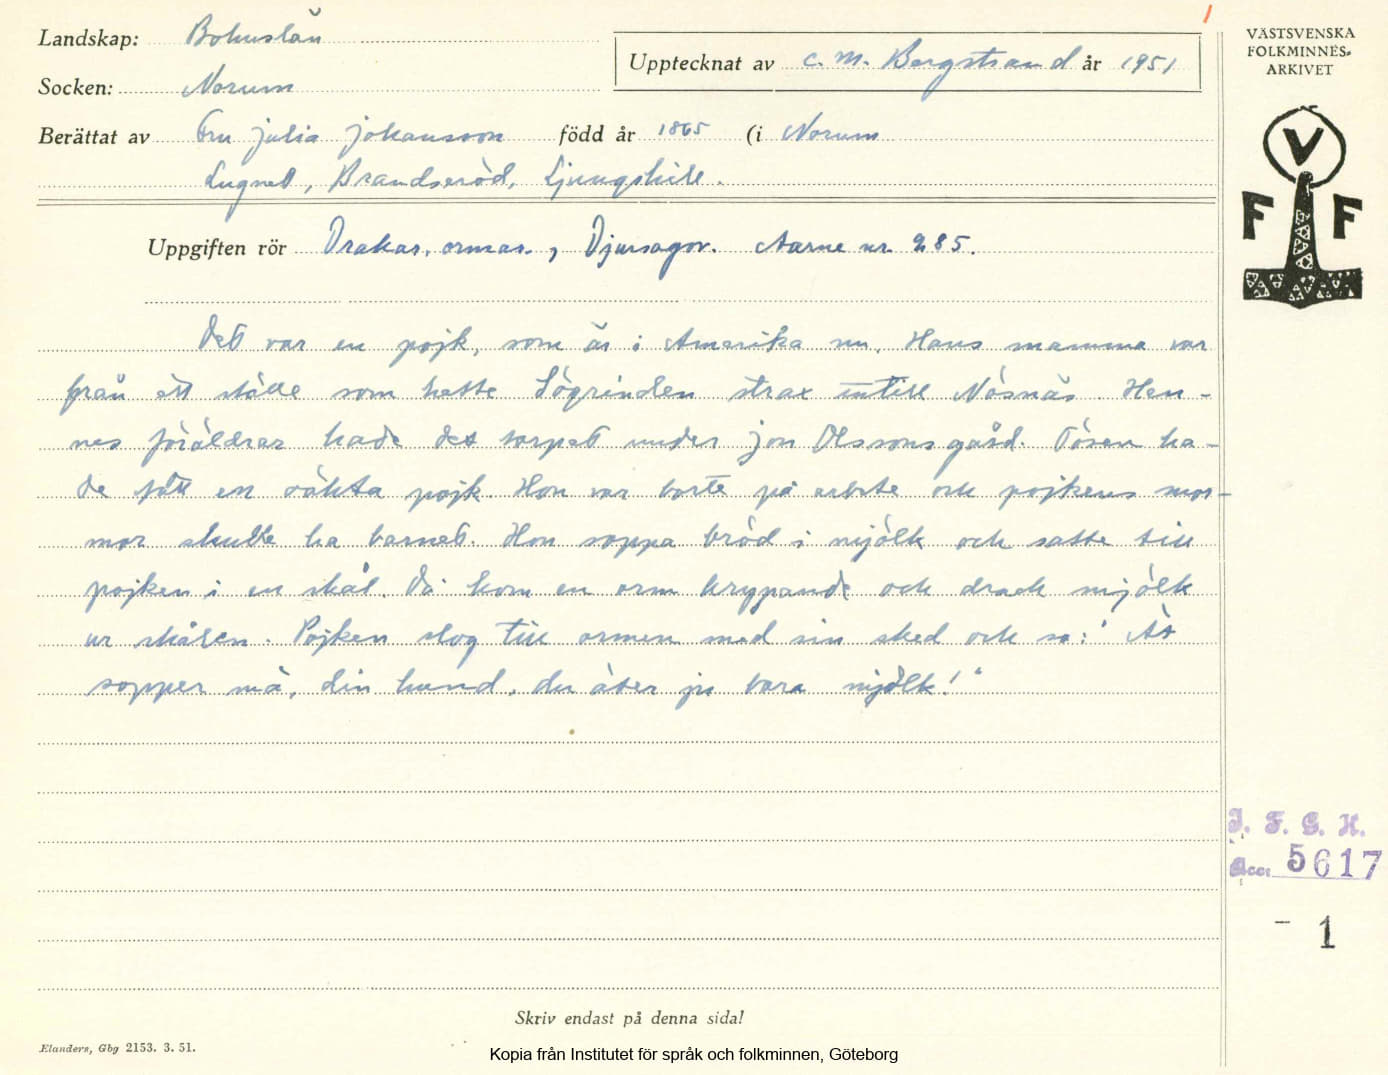 Landskap: Bohuslän
Socken: Norum
Upptecknat av C. M. Bergstrand år 1951
Berättat av Fru Julia Johansson född år 1865 (i Norum
Lugnet, Brandseröd, Ljungskile.
Uppgiften rör Drakar, ormar., Djursagor. Aarne nr 285.
Det var en pojk, som är i Amerika nu. Hans mamma var
från ett ställe som hette Sögrinden strax intill Nösnäs. Hen-
nes föräldrar hade det torpet under Jon Olssons gård. Tösen ha-
de fått en oäkta pojk. Hon var borte på arbete och pojkens mor-
mor skulle ha barnet. Hon soppa bröd i mjölk och satte till
pojken i en skål. Då kom en orm krypande och drack mjölk
ur skålen. Pojken slog till ormen med sin sked och sa: "Ät
sopper må, din hund, du äter ju bara mjölk!"
Skriv endast på denna sida!
Elanders, Gbg 2153. 3. 51.
Kopia från Institutet för språk och folkminnen, Göteborg
VÄSTSVENSKA
FOLKMINNES-
ARKIVET
V
F F
I. F. G. H.
Acc: 5617
- 1